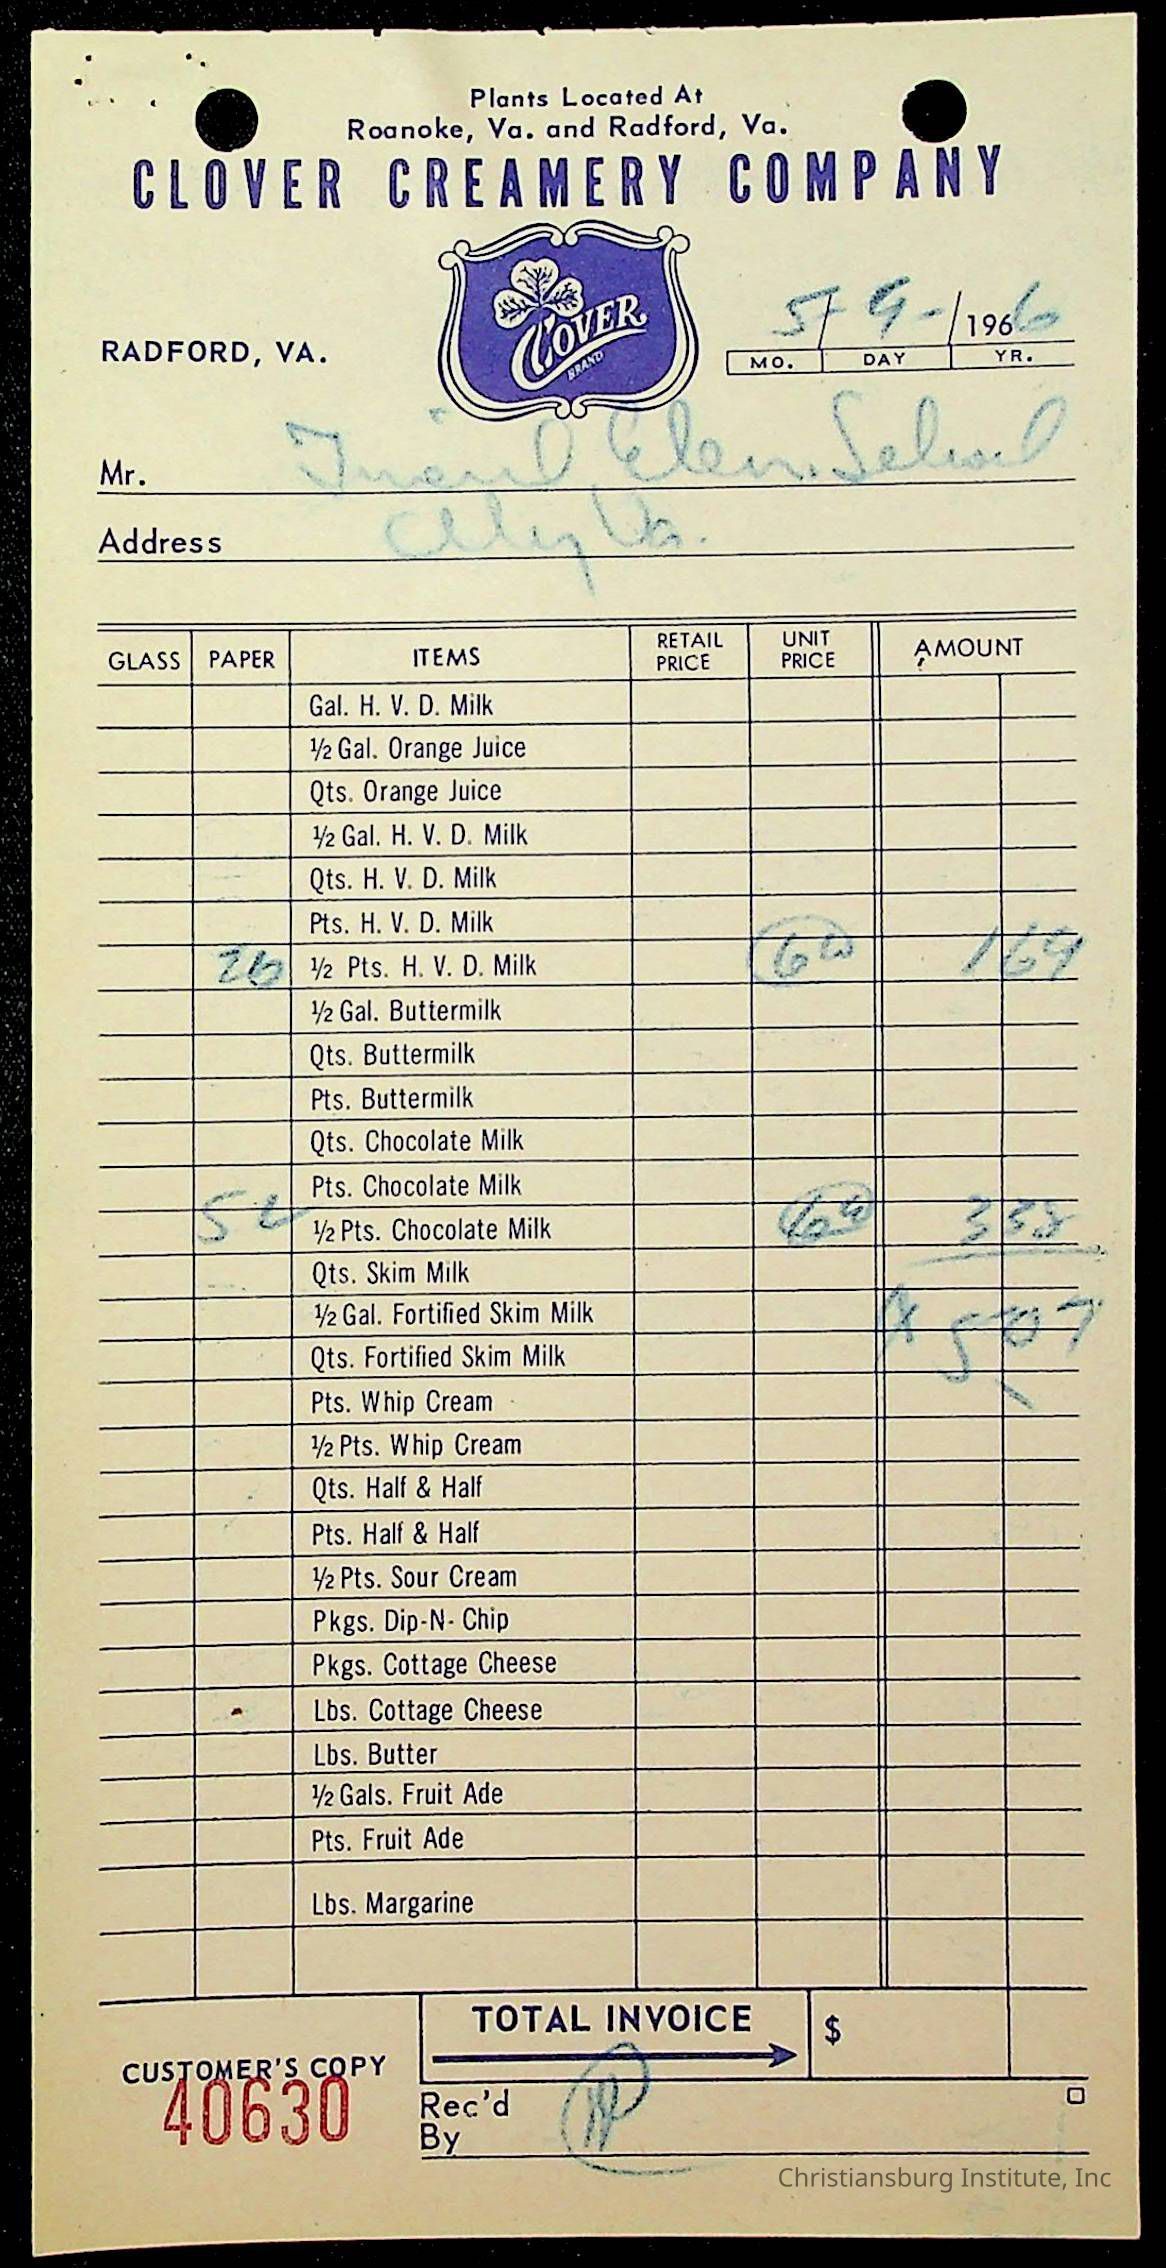 Plants Located At
Roanoke, Va. and Radford, Va.
CLOVER CREAMERY COMPANY
CLOVER
BRAND
RADFORD, VA.
5/9-/1966
MO. DAY YR.
Mr. Elem. School
Address Va.
GLASS PAPER ITEMS RETAIL PRICE UNIT PRICE AMOUNT
Gal. H. V. D. Milk
½ Gal. Orange Juice
Qts. Orange Juice
½ Gal. H. V. D. Milk
Qts. H. V. D. Milk
Pts. H. V. D. Milk
26 ½ Pts. H. V. D. Milk 169
½ Gal. Buttermilk
Qts. Buttermilk
Pts. Buttermilk
Qts. Chocolate Milk
Pts. Chocolate Milk
52 ½ Pts. Chocolate Milk 338
Qts. Skim Milk
½ Gal. Fortified Skim Milk 507
Qts. Fortified Skim Milk
Pts. Whip Cream
½ Pts. Whip Cream
Qts. Half & Half
Pts. Half & Half
½ Pts. Sour Cream
Pkgs. Dip-N-Chip
Pkgs. Cottage Cheese
Lbs. Cottage Cheese
Lbs. Butter
½ Gals. Fruit Ade
Pts. Fruit Ade
Lbs. Margarine
TOTAL INVOICE $
CUSTOMER'S COPY
40630
Rec'd
By
Christiansburg Institute, Inc